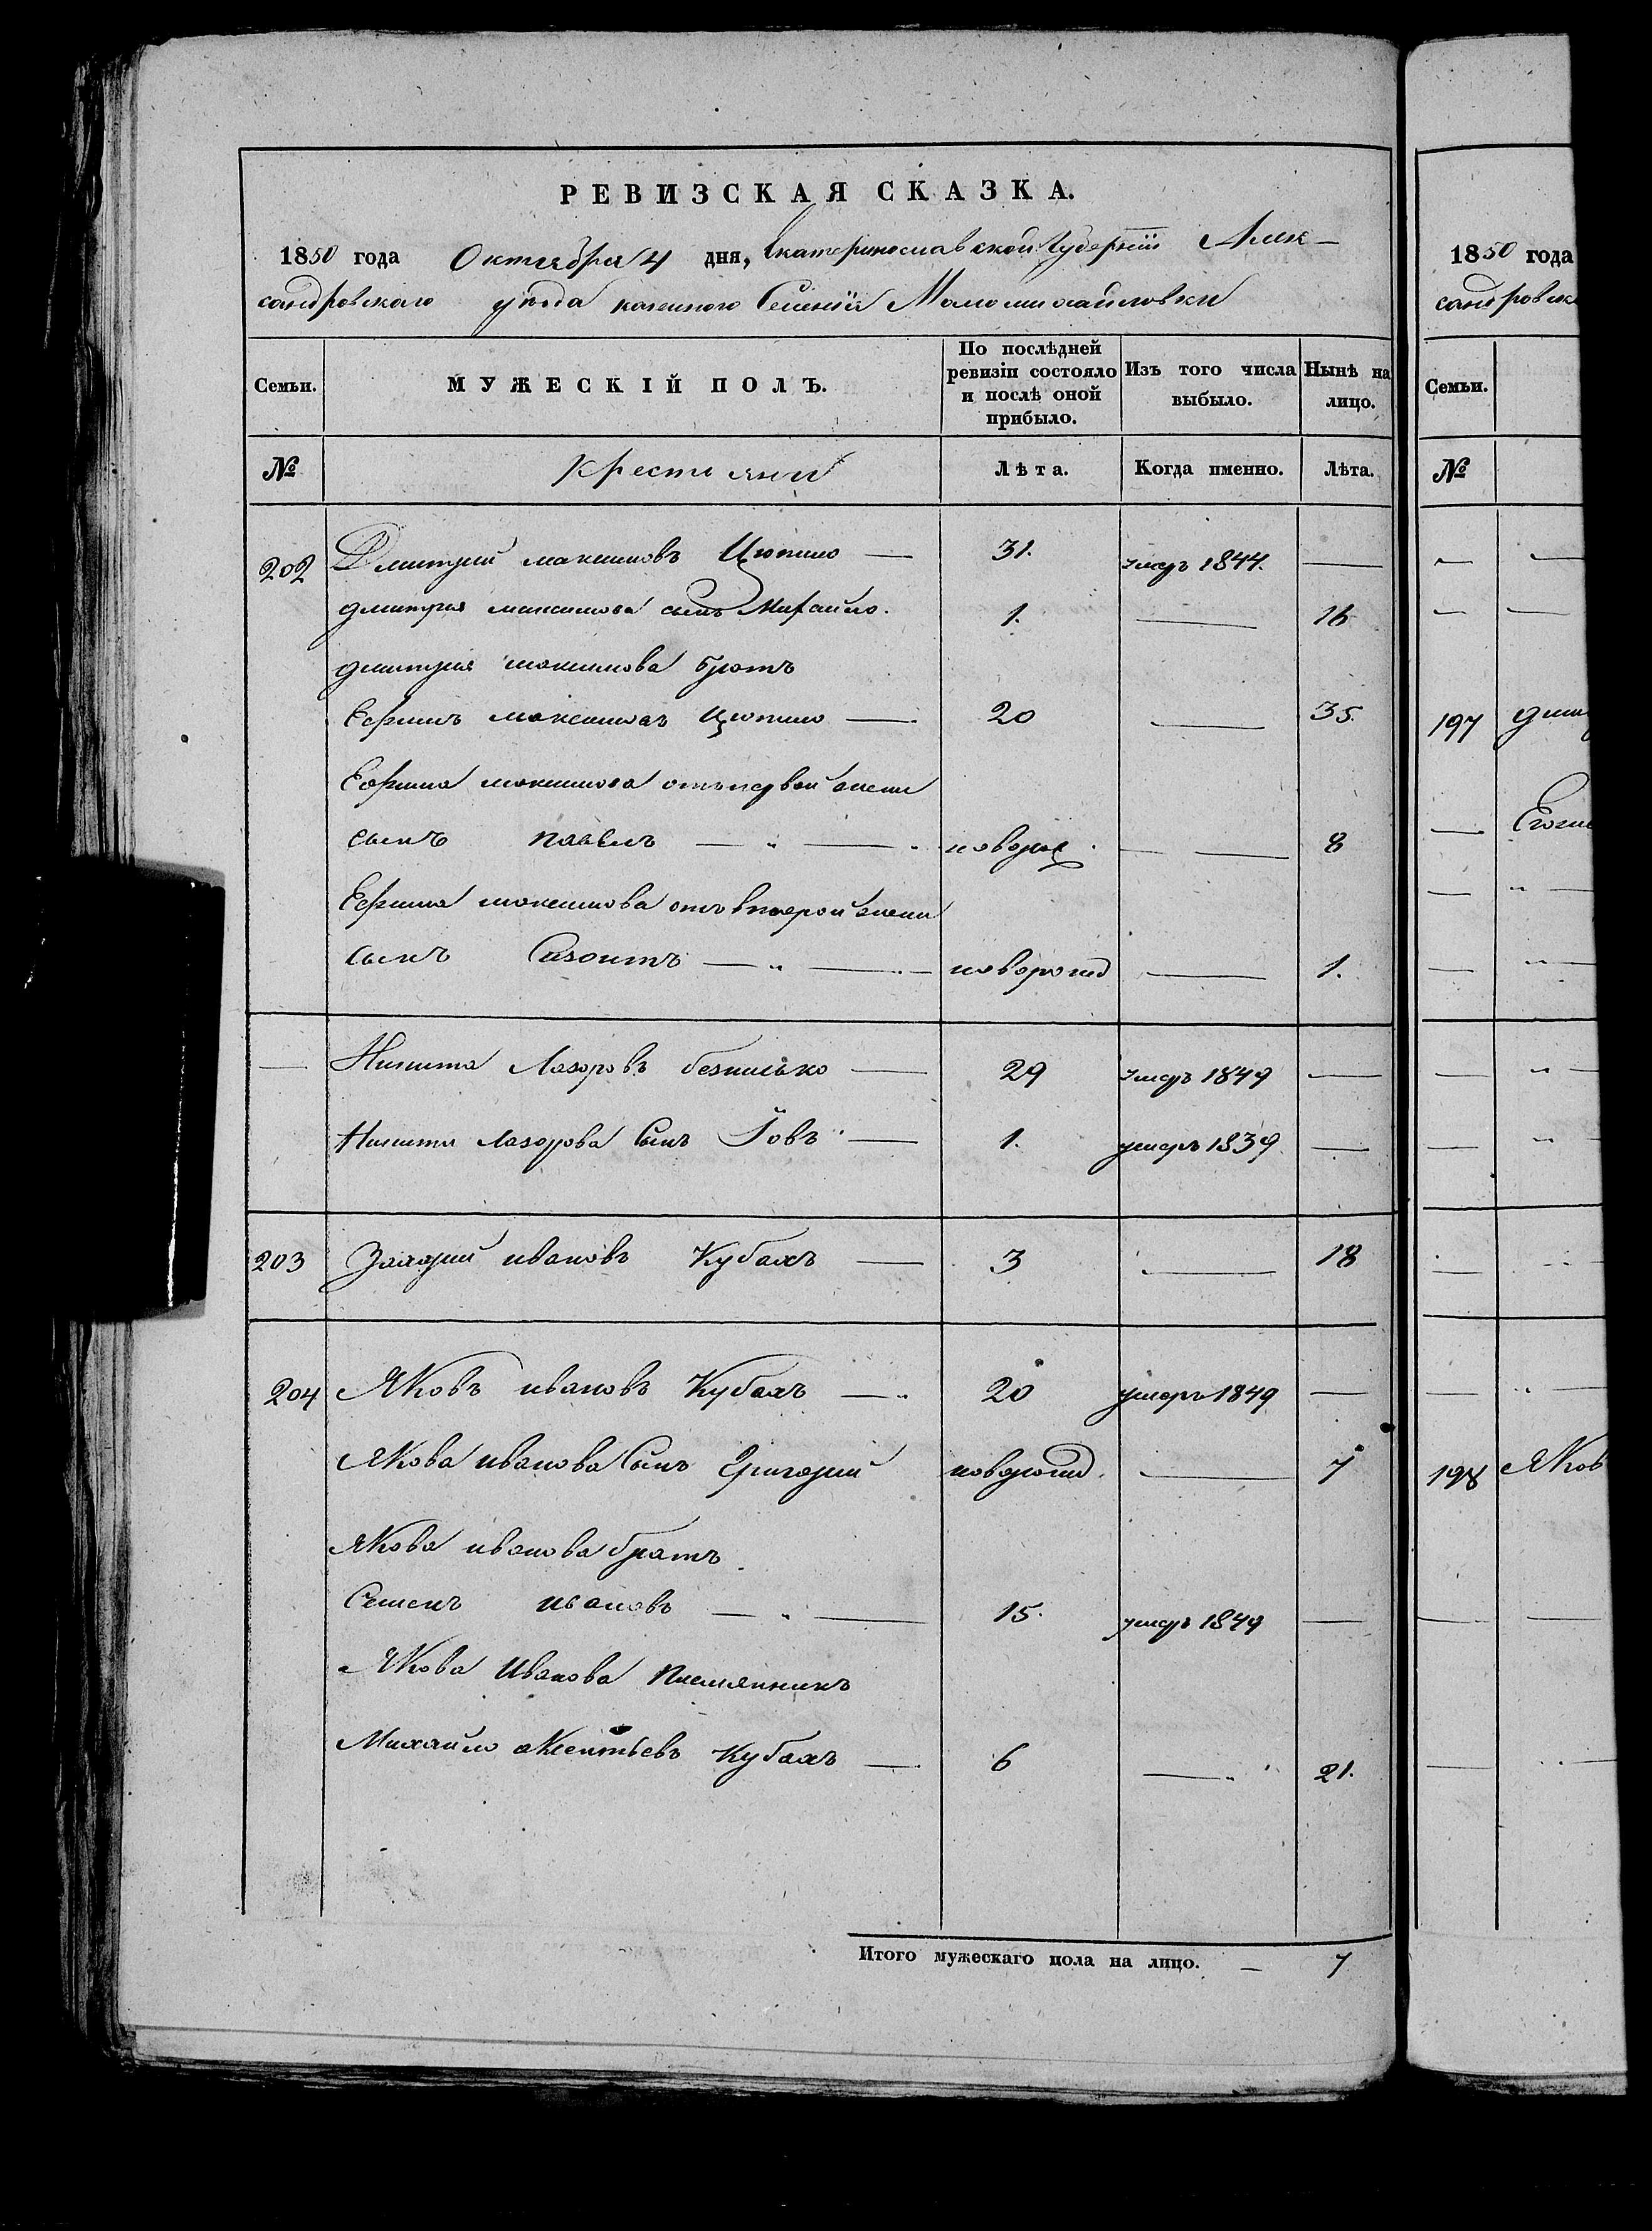 РЕВИЗСКАЯ СКАЗКА.
1850 года Октября 4 дня, Екатеринославской Губернiи Алек-
сандровского уезда казенного Селенiя Маломихайловки
Семьи. МУЖЕСКІЙ ПОЛЪ. По послѣдней ревизіи состояло и послѣ оной прибыло. Изъ того числа выбыло. Нынѣ на лицо.
№ Крестьяни Лѣта. Когда именно. Лѣта.
202 Дмитрий максимовъ Цюпило — 31. умеръ 1844. —
дмитрия максимова сынъ Михайло. 1. — 16
дмитрия максимова братъ
Ефимъ максимовъ Цюпило — 20 — 35.
Ефима максимова отъ первой жени
сынъ павелъ — " — новорж. — — 8
Ефима максимова отъ второй жени
сынъ Сазонтъ — " — новорожд — 1.
— Никита Лазоровъ — 29 умеръ 1849 —
Никити Лазорова Сынъ Іовъ — 1. умеръ 1839. —
203 Захарий ивановъ Кубахъ — 3 — 18
204 Яковъ ивановъ Кубахъ — " 20 умеръ 1849 —
Якова иванова Сынъ Григорий новорожд. — 7
Якова иванова братъ
Семенъ ивановъ — " — 15. умеръ 1849 —
Якова Иванова Племянникъ
Михайло Кубахъ — 6 — " 21.
Итого мужескаго пола на лицо. — 7
1850 года
сандровск
Семьи.
№
197 дми
198 Яков